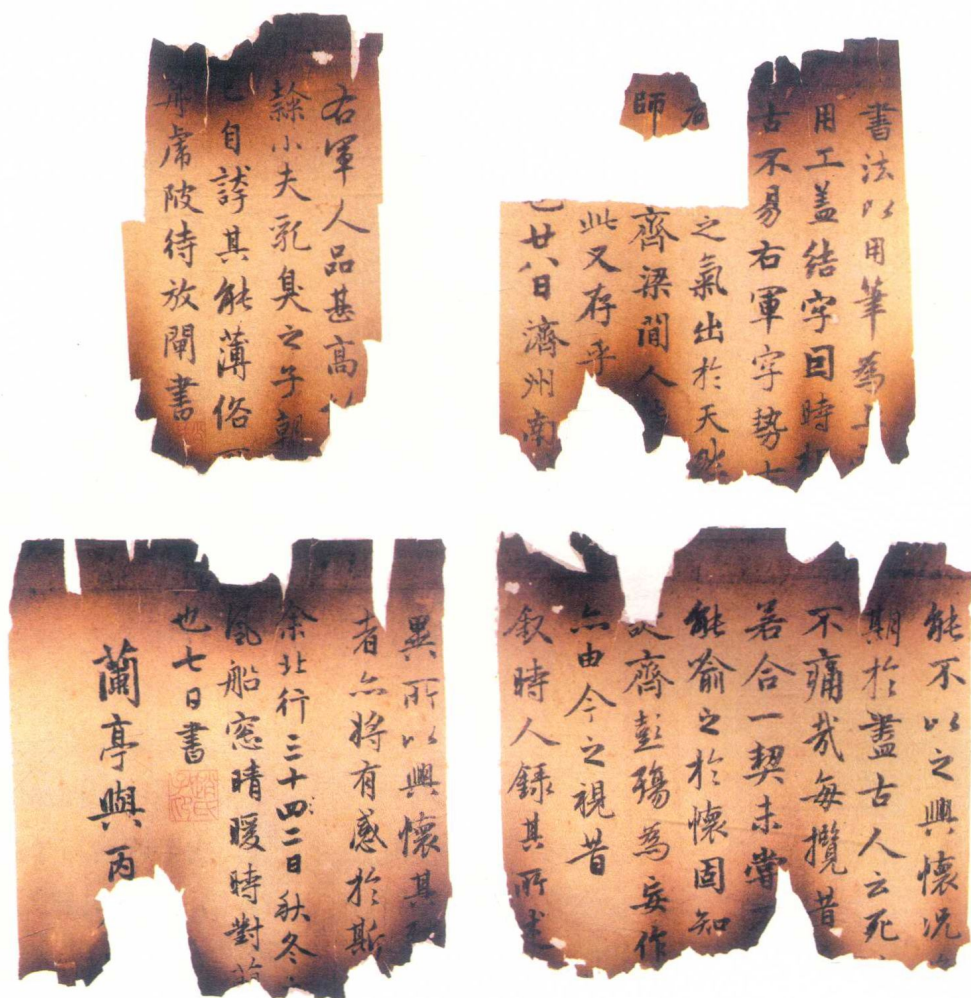 書法以用筆為上
用工盖結字因時相
古不易右軍字勢古
之氣出於天然
師
齊梁間人
此又存乎
也廿八日濟州南
右軍人品甚高
隸小夫乳臭之子朝
已自誇其能薄俗可
舟虎陂待放閘書
能不以之興懷况
期於盡古人云死
不痛哉每攬昔
若合一契未嘗
能喻之於懷固知
誕齊彭殤為妄作
亦由今之視昔
叙時人錄其所述
異所以興懷其致
者亦將有感於斯
余北行三十四二日秋冬
風船窓晴暖時對
也七日書
蘭亭與丙